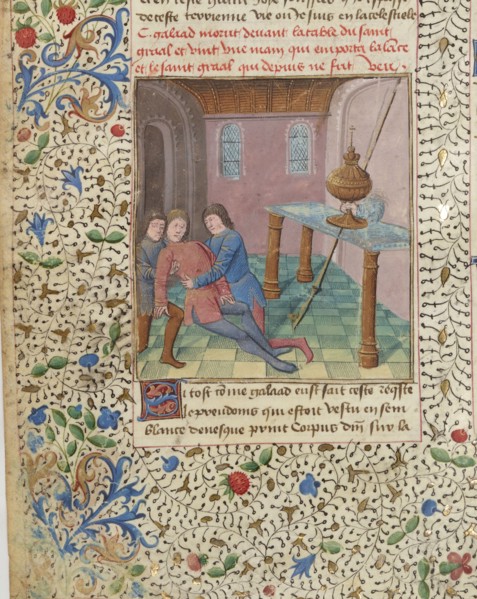 de ceste terrienne vie ou Jesus en la celestielle
C. galaad morut devant la table du saint
graal et vint une main qui emporta la lance
et le saint graal qui depuis ne fut veu.
Si tost co͂me galaad eust fait ceste req̃ste
le preudoms qui estoit vestu en sem
blance devesque prinst Corpus dnĩ sur la